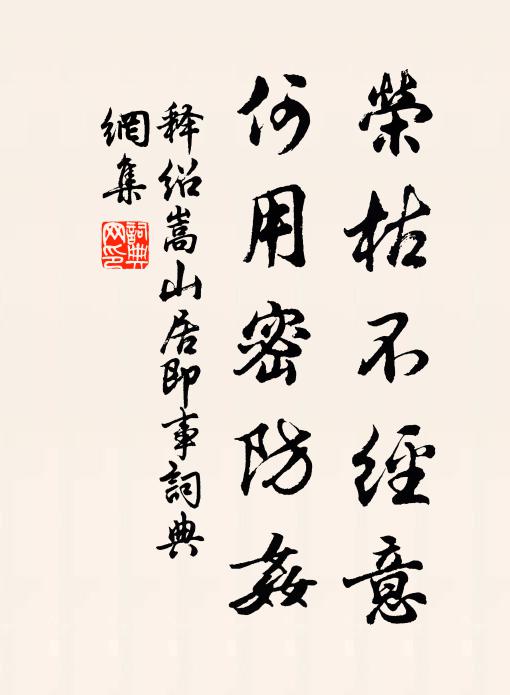 榮枯不經意
何用密防姦
释紹嵩山居即事詞典
網集
詞典
网印